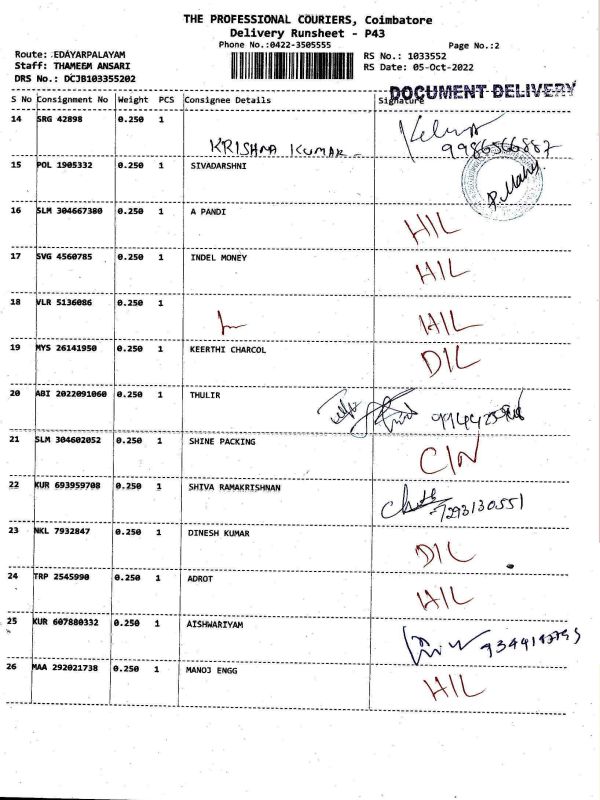 THE PROFESSIONAL COURIERS, Coimbatore
Delivery Runsheet - P43
Phone No.:0422-3505555
Page No.:2
Route: EDAYARPALAYAM
Staff: THAMEEM ANSARI
DRS No.: DCJB103355202
RS No.: 1033552
RS Date: 05-Oct-2022
DOCUMENT DELIVERY
S No Consignment No Weight PCS Consignee Details Signature
14 SRG 42898 0.250 1
KRISHNA KUMAR 9986566887
15 POL 1905332 0.250 1 SIVADARSHNI
16 SLM 304667380 0.250 1 A PANDI HIL
17 SVG 4560785 0.250 1 INDEL MONEY HIL
18 VLR 5136086 0.250 1 HIL
19 MYS 26141950 0.250 1 KEERTHI CHARCOL DIL
20 ABI 2022091060 0.250 1 THULIR
21 SLM 304602052 0.250 1 SHINE PACKING CIN
22 KUR 693959708 0.250 1 SHIVA RAMAKRISHNAN 7293130551
23 NKL 7932847 0.250 1 DINESH KUMAR DIL
24 TRP 2545990 0.250 1 ADROT HIL
25 KUR 607880332 0.250 1 AISHWARIYAM
26 MAA 292021738 0.250 1 MANOJ ENGG HIL